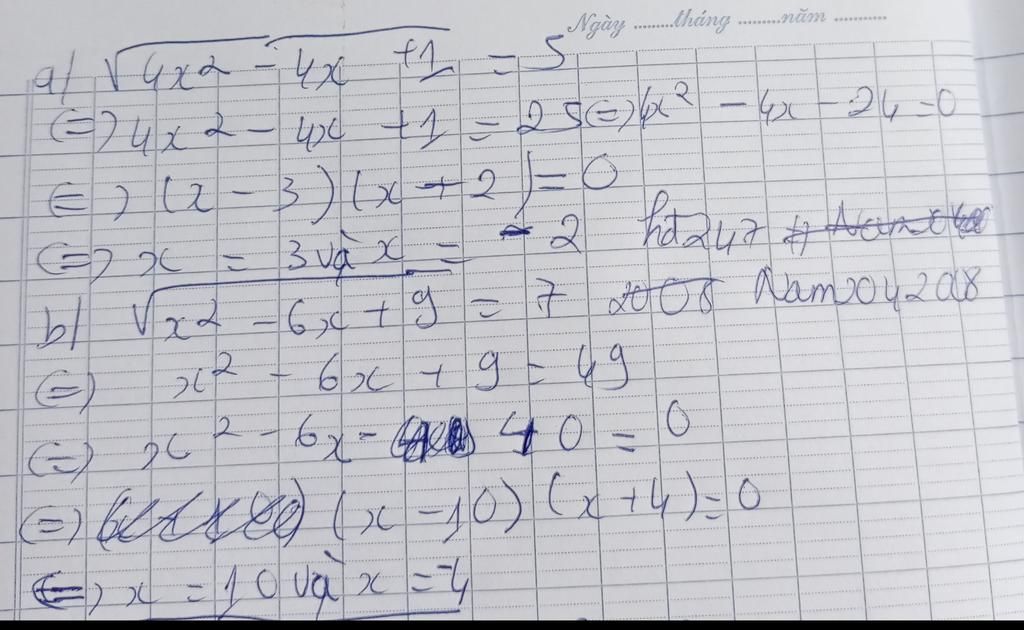 Ngày ........tháng ........năm ...........
a/ √4x2 - 4x + 1 = 5
(=) 4x2 - 4x + 1 = 25 (=) 4x² - 4x - 24 = 0
(=) (x - 3) (x + 2) = 0
(=) x = 3 và x = -2 hđ247
b/ √x2 - 6x + 9 = 7 2008 Nam042018
(=) x² - 6x + 9 = 49
(=) x² - 6x - 40 = 0
(=) (x - 10) (x + 4) = 0
(=) x = 10 và x = -4